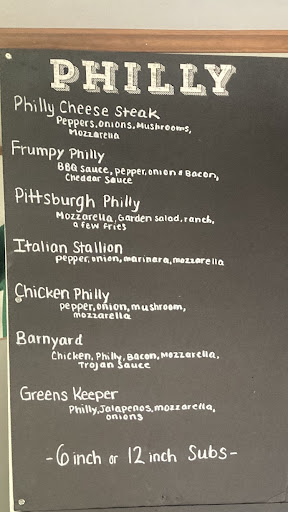 PHILLY
Philly Cheese Steak
Peppers, onions, Mushrooms,
Mozzarella
Frumpy Philly
BBQ sauce, pepper, onion & Bacon,
Cheddar Sauce
Pittsburgh Philly
Mozzarella, Garden salad, ranch,
a few fries
Italian Stallion
pepper, onion, marinara, mozzarella
Chicken Philly
pepper, onion, mushroom,
mozzarella
Barnyard
Chicken, Philly, Bacon, Mozzarella,
Trojan Sauce
Greens Keeper
Philly, Jalapenos, mozzarella,
onions
-6 inch or 12 inch Subs-